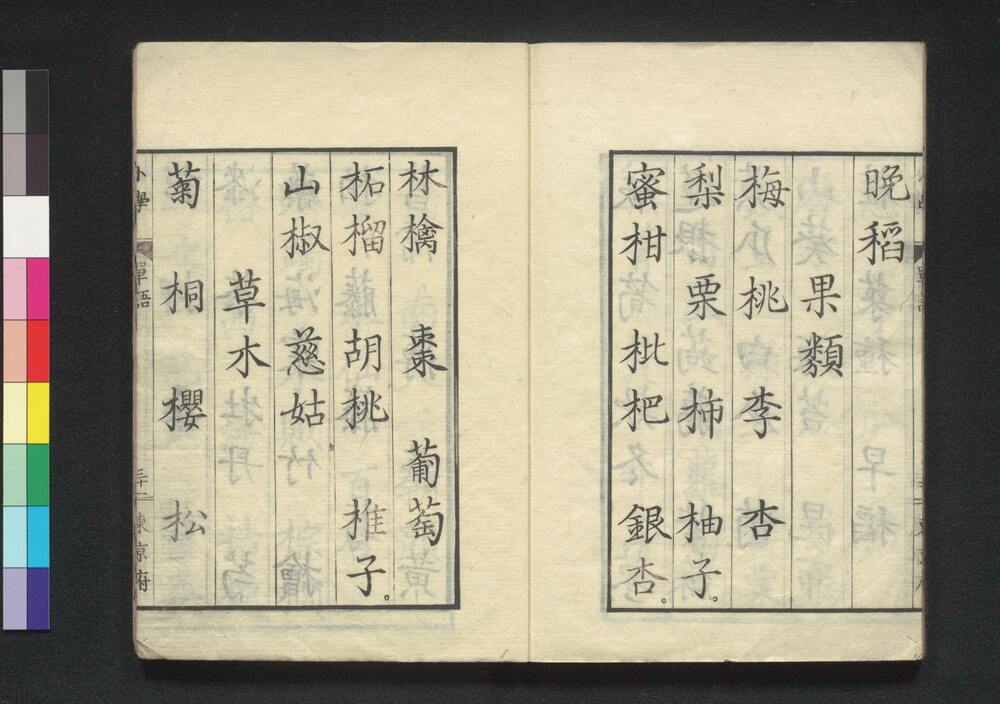 晩稻
果類
梅 桃 李 杏
梨 栗 柿 柚子。
蜜柑 枇杷 銀杏。
林檎 棗 葡萄
柘榴 胡桃 椎子。
山椒 慈姑
草木
菊 桐 櫻 松
小學 單語 三十一 東京府